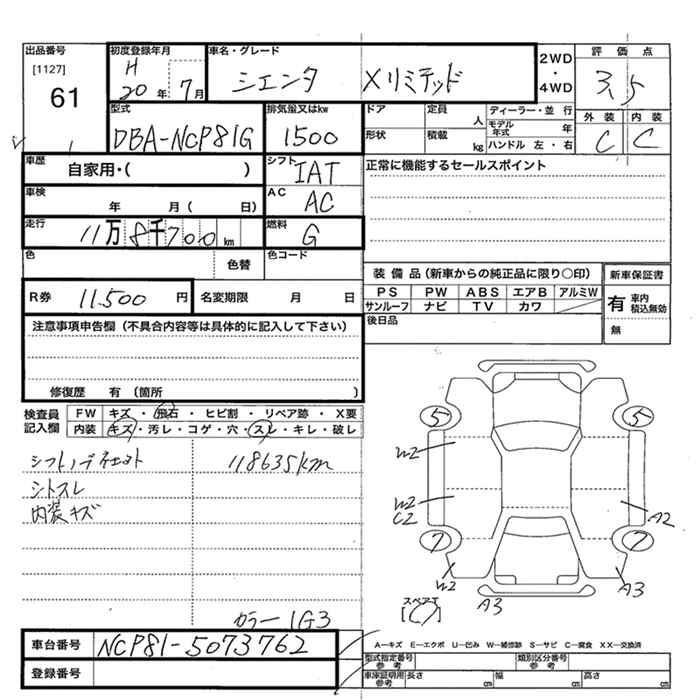 出品番号
[1127]
61
初度登録年月
H
20年 7月
車名・グレード
シエンタ Xリミテッド
2WD
・
4WD
評価点
3.5
外装 内装
C C
型式
DBA-NCP81G
排気量又はkw
1500
ドア
定員
人
ディーラー・並行
モデル年式 年
形状
積載
kg
ハンドル 左・右
車歴
自家用・( )
シフト
IAT
正常に機能するセールスポイント
車検
年 月 ( 日)
AC
AC
走行
11万8千700km
燃料
G
色
色替
色コード
装備品(新車からの純正品に限り○印)
PS PW ABS エアB アルミW
サンルーフ ナビ TV カワ
新車保証書
有 車内積込無効
無
R券
11,500 円
名変期限 月 日
後日品
注意事項申告欄(不具合内容等は具体的に記入して下さい)
修復歴 有(箇所 )
検査員記入欄
FW キズ・飛石・ヒビ割・リペア跡・X要
内装 キズ・汚レ・コゲ・穴・スレ・キレ・破レ
118635km
シトスレ
内装キズ
カラー 1G3
5 5
W2
W2
C2
A2
7 7
W2
A3
A3
スペアT
A―キズ E―エクボ U―凹み W―補修跡 S―サビ C―腐食 XX―交換済
車台番号
NCP81-5073762
登録番号
型式指定番号参考
類別区分番号参考
車庫証明用参考
長さ cm
幅 cm
高さ cm